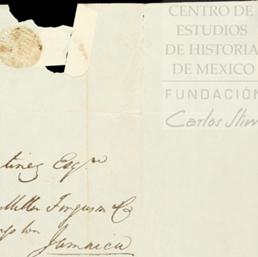 CENTRO DE
ESTUDIOS
DE HISTORIA
DE MEXICO
FUNDACIÓN
Carlos Slim
tinez Esqre
Miller Ferguson & Co
Jamaica